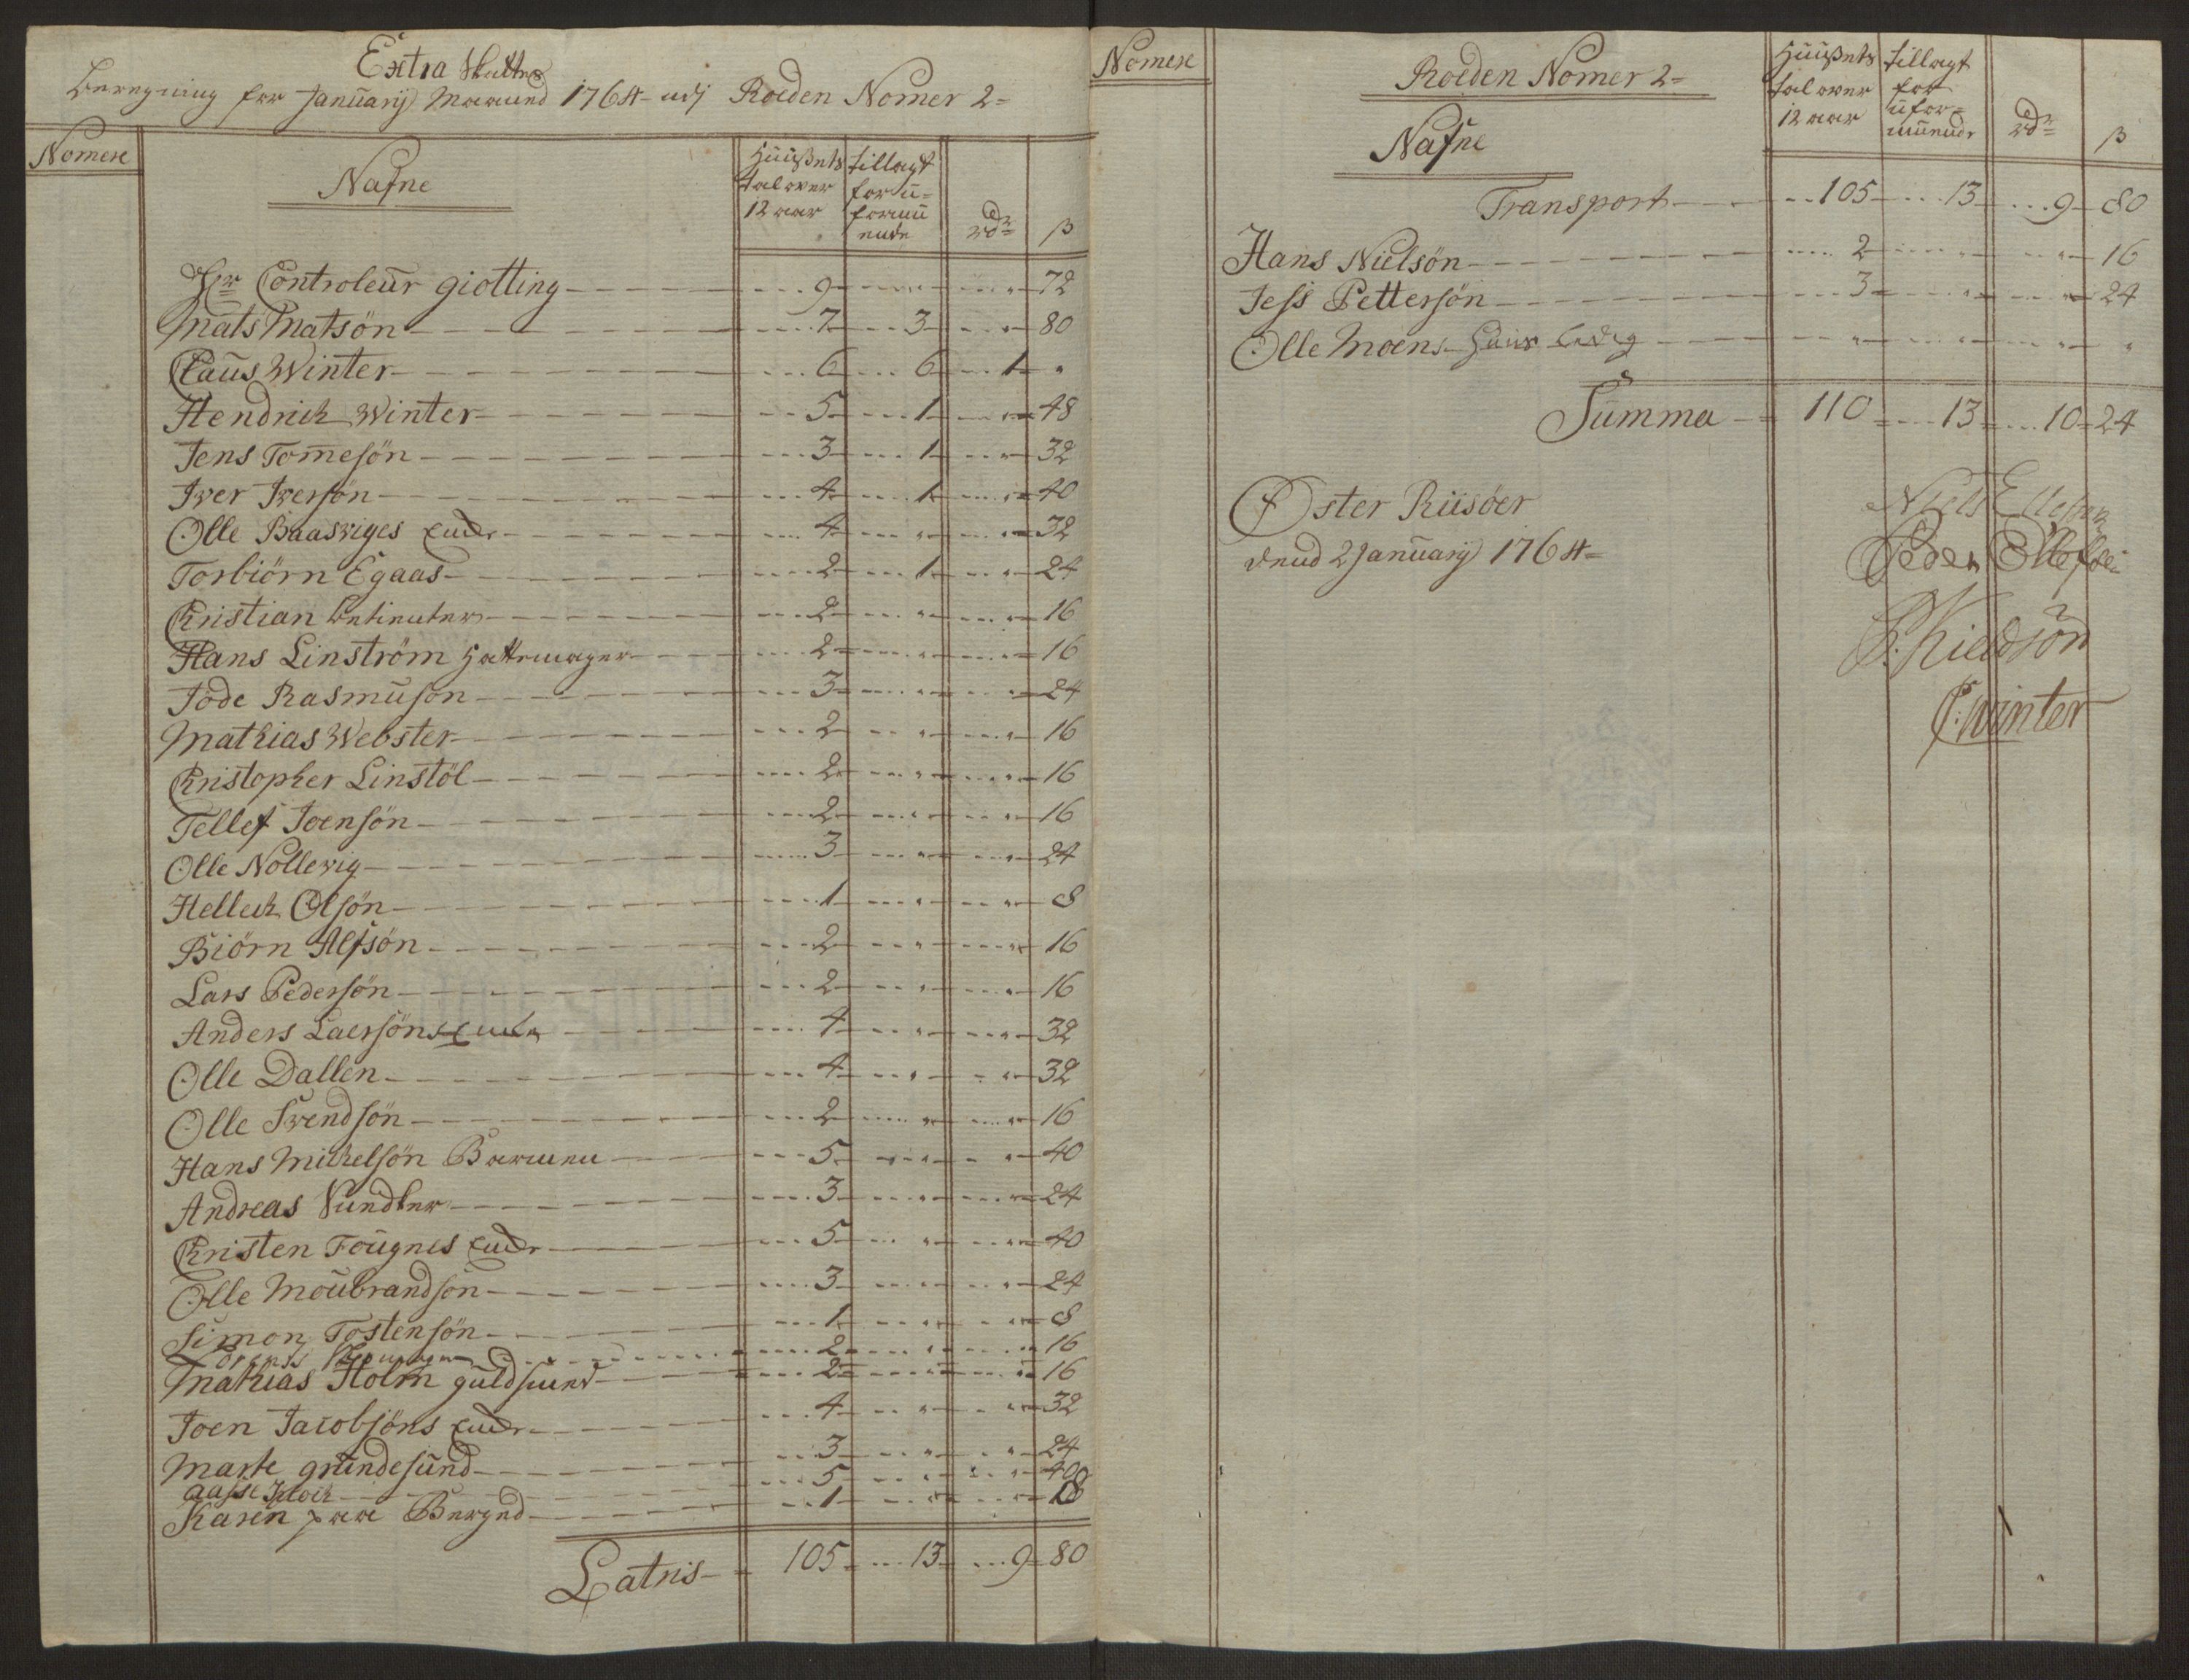 Extra Skattes
Beregning for January Maaned 1764 udj Roeden Nomer 2
Nomere
Nafne
Huusets tal over 12 aar
tillagt for u-formuende
rdr
β
Hr Controleur giotting 9 " " 72
Mats Matsön 7 3 " 80
Claus Winter 6 6 1 "
Hendrich Winter 5 1 " 48
Jens Tomesön 3 1 " 32
Iver Iversön 4 1 " 40
Olle Baasviges Encke 4 " " 32
Torbiörn Egaas 2 1 " 24
Christian 2 " " 16
Hans Linström Hattemager 2 " " 16
Tode Rasmuson 3 " " 24
Mathias Webster 2 " " 16
Christopher Linstöl 2 " " 16
Tellef Joensön 2 " " 16
Olle Nollevig 3 " " 24
Hellech Olsön 1 " " 8
Biörn Alfsön 2 " " 16
Lars Pedersön 2 " " 16
Anders Laersöns Encke 4 " " 32
Olle Dallen 4 " " 32
Olle Svendsön 2 " " 16
Hans Michelsön 5 " " 40
Andreas 3 " " 24
Christen Fougnes Encke 5 " " 40
Olle Moubrandson 3 " " 24
Simon Tostensön 1 " " 8
2 " " 16
Mathias Holm guldsmed 2 " " 16
Joen Jacobsöns Encke 4 " " 32
Marte grundesund 3 " " 24
Aasse 5 " " 40
Karen paa Berged 1 " " 8
Latris 105 13 9 80
Nomere
Roeden Nomer 2
Nafne
Huusets tal over 12 aar
tillagt for ufor-muende
rdr
β
Transport 105 13 9 80
Hans Nielsön 2 " " 16
Jess Pettersön 3 " " 24
Olle Moens Huus Ledig " " " "
Summa 110 13 10 24
Øster Riisöer
dend 2 January 1764
Niels Ellefsen
Peder Ellefsen
P. Kieldsön
C. Winter